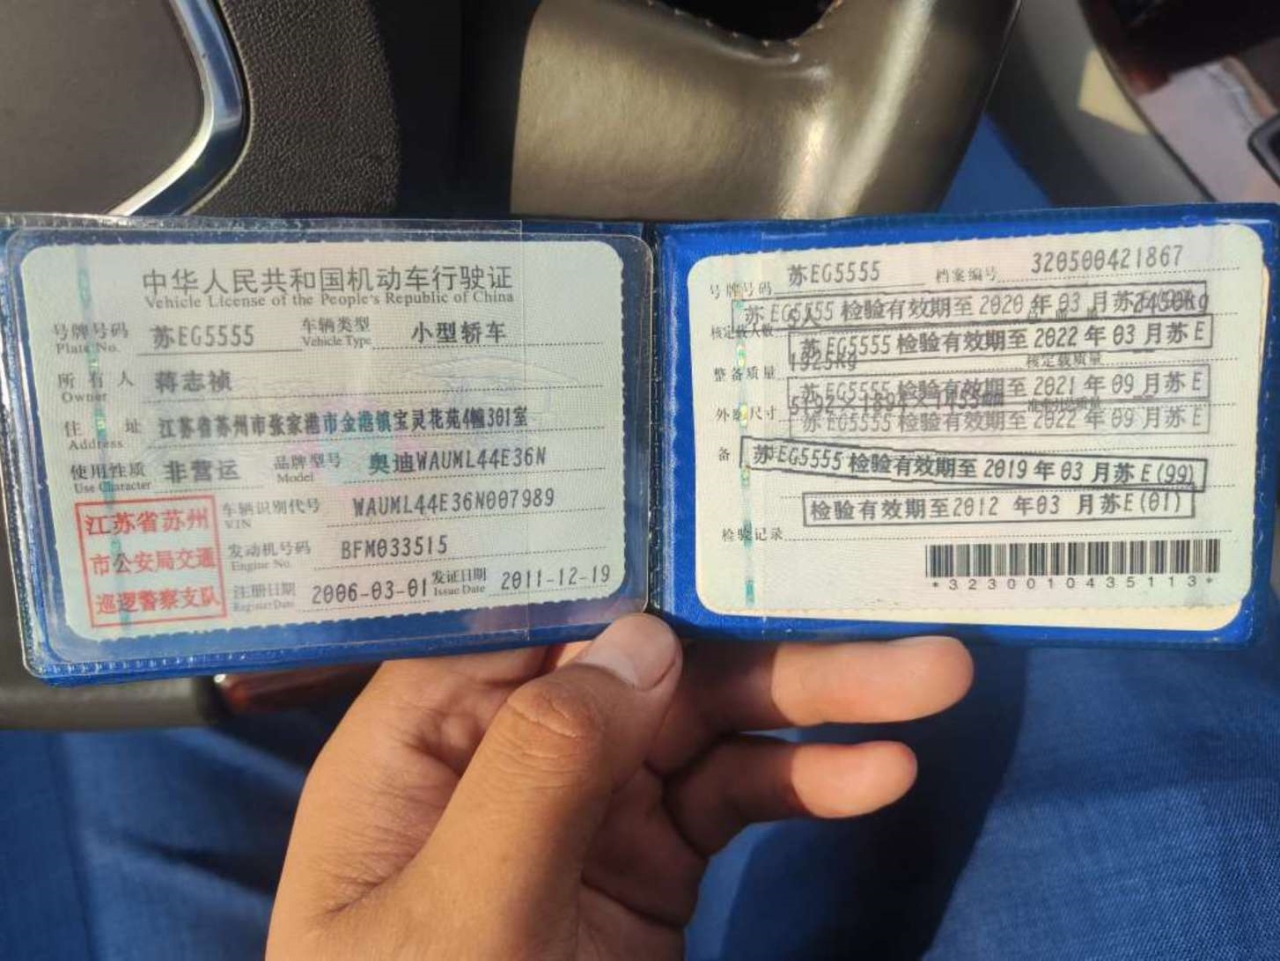 中华人民共和国机动车行驶证
Vehicle License of the People's Republic of China
号牌号码 苏EG5555 车辆类型 小型轿车
Plate No. Vehicle Type
所有人 蒋志祯
Owner
住址 江苏省苏州市张家港市金港镇宝灵花苑4幢301室
Address
使用性质 非营运 品牌型号 奥迪WAUML44E36N
Use Character Model
江苏省苏州
市公安局交通
巡逻警察支队
车辆识别代号 WAUML44E36N007989
VIN
发动机号码 BFM033515
Engine No.
注册日期 2006-03-01 发证日期 2011-12-19
Register Date Issue Date
号牌号码 苏EG5555 档案编号 320500421867
苏EG5555 检验有效期至 2020 年 03 月苏
核定载人数 5人 2450kg
苏EG5555 检验有效期至 2022 年 03 月苏 E
整备质量 1925kg 核定载质量
苏EG5555 检验有效期至 2021 年 09 月苏 E
外廓尺寸
苏EG5555 检验有效期至 2022 年 09 月苏 E
备
苏EG5555 检验有效期至 2019 年 03 月苏 E(99)
检验有效期至2012 年03 月苏E(01)
检验记录
*3230010435113*